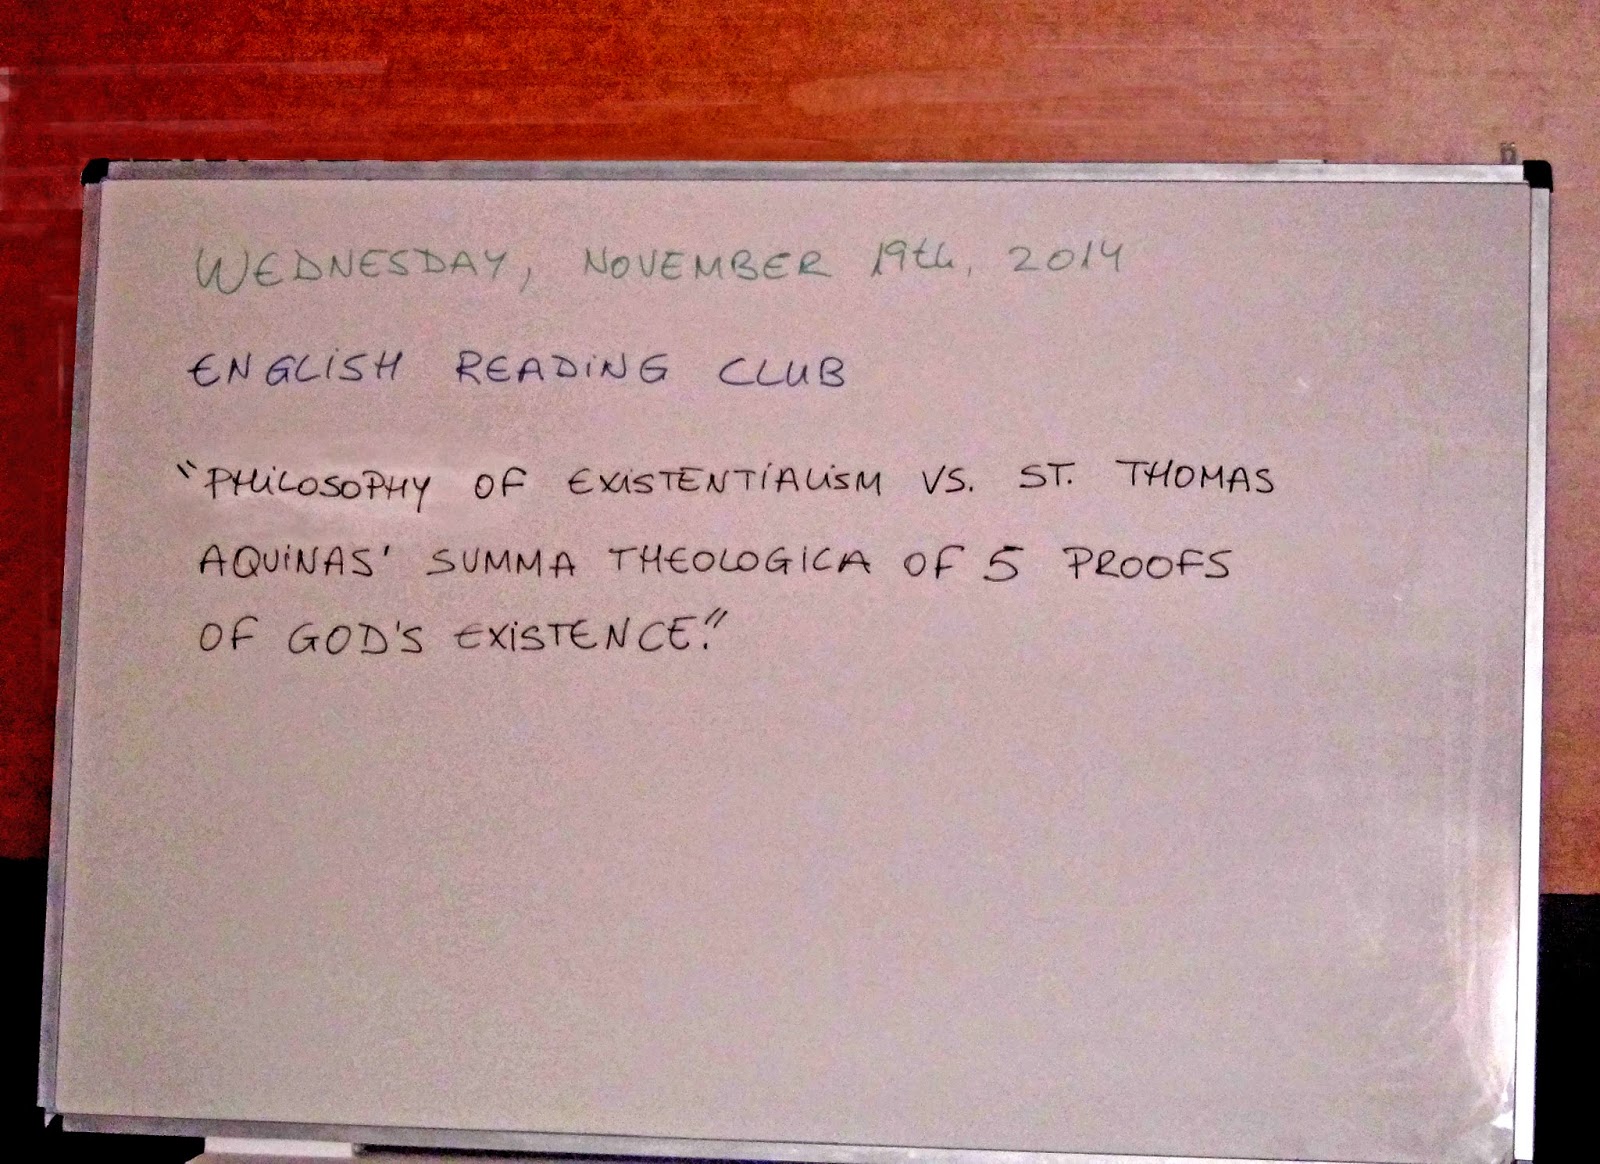 WEDNESDAY, NOVEMBER 19th, 2014
ENGLISH READING CLUB
"PHILOSOPHY OF EXISTENTIALISM VS. ST. THOMAS
AQUINAS' SUMMA THEOLOGICA OF 5 PROOFS
OF GOD'S EXISTENCE."